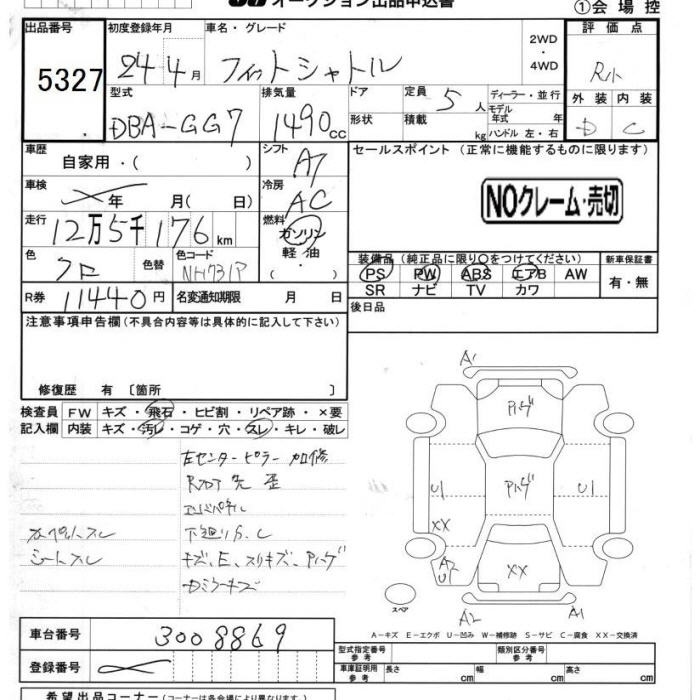 オークション出品申込書
①会場控
出品番号
5327
初度登録年月
24年4月
車名・グレード
フィットシャトル
2WD
・
4WD
評価点
R
外装 内装
D C
型式
DBA-GG7
排気量
1490cc
ドア
形状
定員 5人
積載 kg
ディーラー・並行
モデル
年式 年
ハンドル 左・右
車歴
自家用・( )
シフト
AT
セールスポイント (正常に機能するものに限ります)
車検
年 月(日)
冷房
AC
NOクレーム・売切
走行
12万5千176km
燃料
ガソリン
軽油
( )
色
クロ
色替
色コード
NH731P
装備品 (純正品に限り○をつけてください)
PS PW ABS エアB AW
SR ナビ TV カワ
新車保証書
有・無
R券 11440円
名変通知期限 月 日
後日品
注意事項申告欄 (不具合内容等は具体的に記入して下さい)
修復歴 有 〔箇所 〕
検査員
記入欄
FW キズ・飛石・ヒビ割・リペア跡・×要
内装 キズ・汚レ・コゲ・穴・スレ・キレ・破レ
左センターピラー加修
先歪
カーペットスレ
下廻りS、C
シートスレ
キズ、E、スリキズ、Pハゲ
ミラーキズ
A1
Pハゲ
U1
Pハゲ
U1
XX
A2
U1
XX
スペア
A2
A1
A-キズ E-エクボ U-凹み W-補修跡 S-サビ C-腐食 XX-交換済
車台番号
3008869
登録番号
型式指定番号
参考
類別区分番号
参考
車庫証明用
参考
長さ cm
幅 cm
高さ cm
希望出品コーナー (コーナーは各会場により異なります)